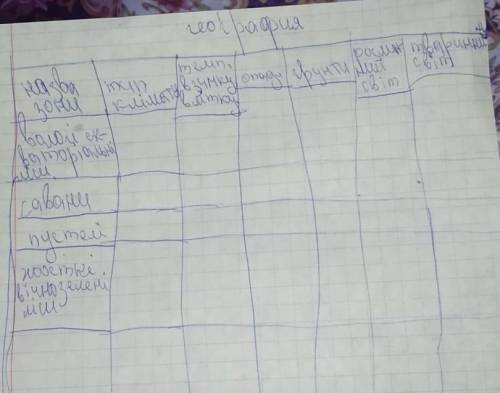 география
назва зони
тип клімату
темп. взимку влітку
опади
ґрунти
рослинний світ
тваринний світ
вологі екваторіальні
савани
пустелі
жорсткі вічнозелені